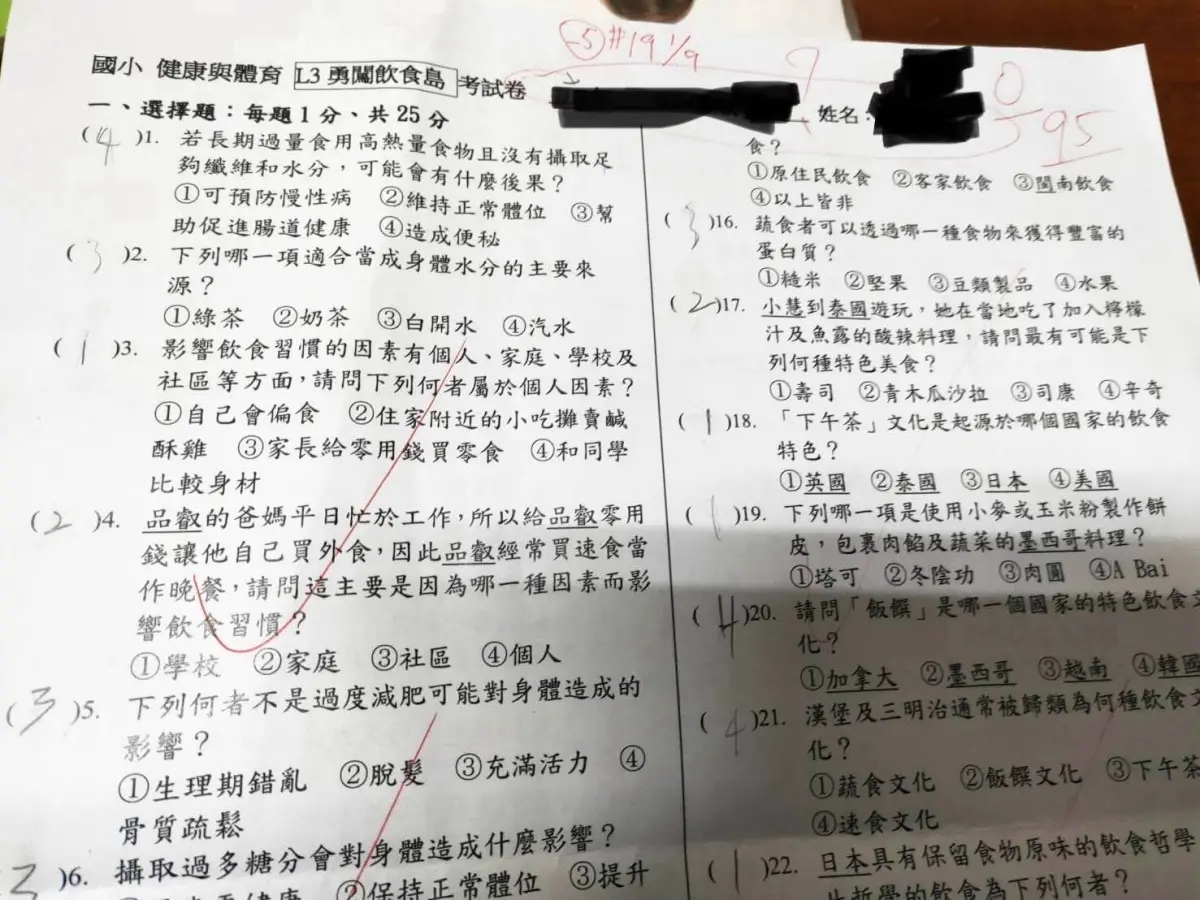 -5 #19 1/9
95
國小 健康與體育 L3 勇闖飲食島 考試卷
姓名:
一、選擇題:每題1分、共25分
(4)1. 若長期過量食用高熱量食物且沒有攝取足
夠纖維和水分,可能會有什麼後果?
①可預防慢性病 ②維持正常體位 ③幫
助促進腸道健康 ④造成便秘
(3)2. 下列哪一項適合當成身體水分的主要來
源?
①綠茶 ②奶茶 ③白開水 ④汽水
(1)3. 影響飲食習慣的因素有個人、家庭、學校及
社區等方面,請問下列何者屬於個人因素?
①自己會偏食 ②住家附近的小吃攤賣鹹
酥雞 ③家長給零用錢買零食 ④和同學
比較身材
(2)4. 品叡的爸媽平日忙於工作,所以給品叡零用
錢讓他自己買外食,因此品叡經常買速食當
作晚餐,請問這主要是因為哪一種因素而影
響飲食習慣?
①學校 ②家庭 ③社區 ④個人
(3)5. 下列何者不是過度減肥可能對身體造成的
影響?
①生理期錯亂 ②脫髮 ③充滿活力 ④
骨質疏鬆
)6. 攝取過多糖分會對身體造成什麼影響?
②保持正常體位 ③提升
食?
①原住民飲食 ②客家飲食 ③閩南飲食
④以上皆非
(3)16. 蔬食者可以透過哪一種食物來獲得豐富的
蛋白質?
①糙米 ②堅果 ③豆類製品 ④水果
(2)17. 小慧到泰國遊玩,她在當地吃了加入檸檬
汁及魚露的酸辣料理,請問最有可能是下
列何種特色美食?
①壽司 ②青木瓜沙拉 ③司康 ④辛奇
(1)18. 「下午茶」文化是起源於哪個國家的飲食
特色?
①英國 ②泰國 ③日本 ④美國
(1)19. 下列哪一項是使用小麥或玉米粉製作餅
皮,包裹肉餡及蔬菜的墨西哥料理?
①塔可 ②冬陰功 ③肉圓 ④A Bai
(4)20. 請問「飯饌」是哪一個國家的特色飲食文
化?
①加拿大 ②墨西哥 ③越南 ④韓國
(4)21. 漢堡及三明治通常被歸類為何種飲食文
化?
①蔬食文化 ②飯饌文化 ③下午茶
④速食文化
(1)22. 日本具有保留食物原味的飲食哲學
哲學的飲食為下列何者?